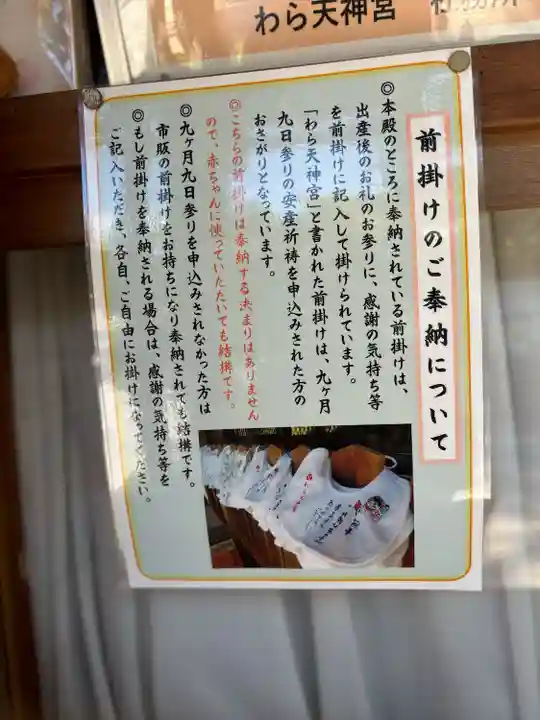 わら天神宮
前掛けのご奉納について
◎本殿のところに奉納されている前掛けは、
出産後のお礼のお参りに、感謝の気持ち等
を前掛けに記入して掛けられています。
「わら天神宮」と書かれた前掛けは、九ヶ月
九日参りの安産祈祷を申込みされた方の
おさがりとなっています。
◎こちらの前掛けは奉納する決まりはありません
ので、赤ちゃんに使っていただいても結構です。
◎九ヶ月九日参りを申込みされなかった方は
市販の前掛けをお持ちになり奉納されても結構です。
◎もし前掛けを奉納される場合は、感謝の気持ち等を
ご記入いただき、各自、ご自由にお掛けになってください。